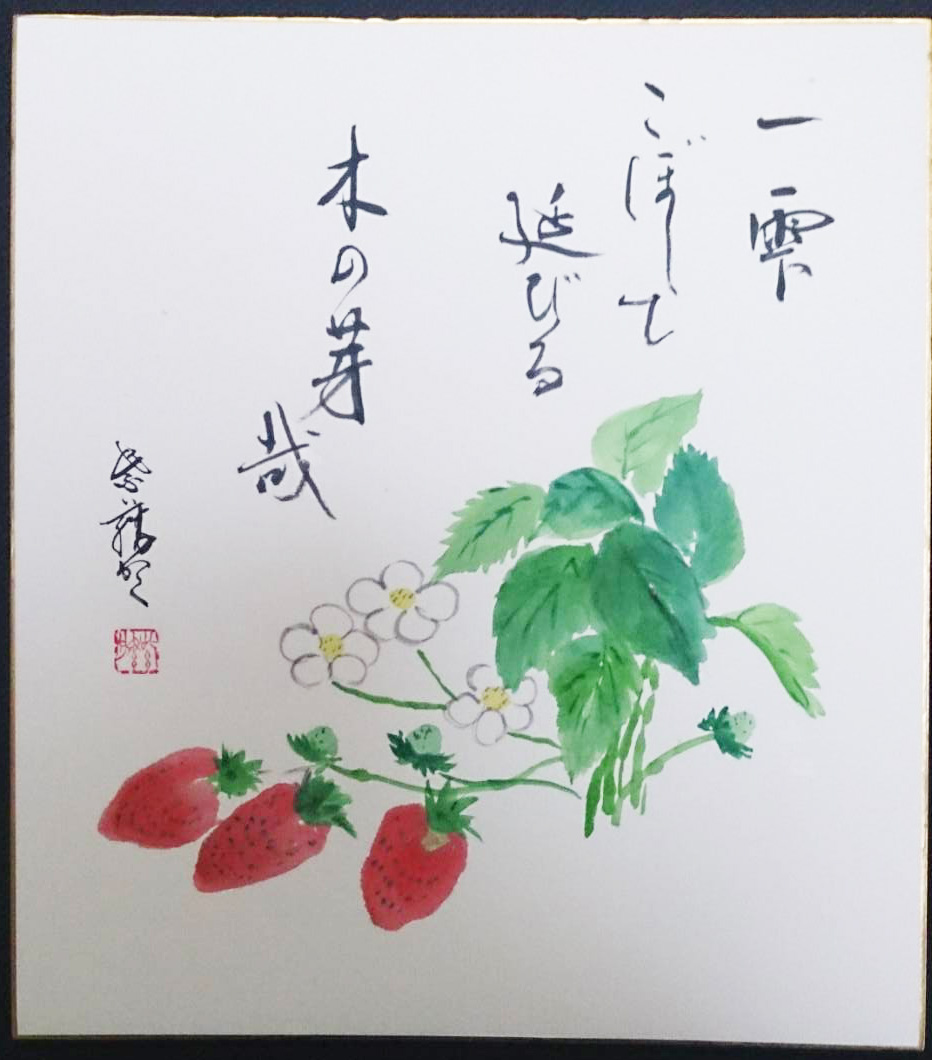 一雫
こぼして
延びる
木の芽
哉